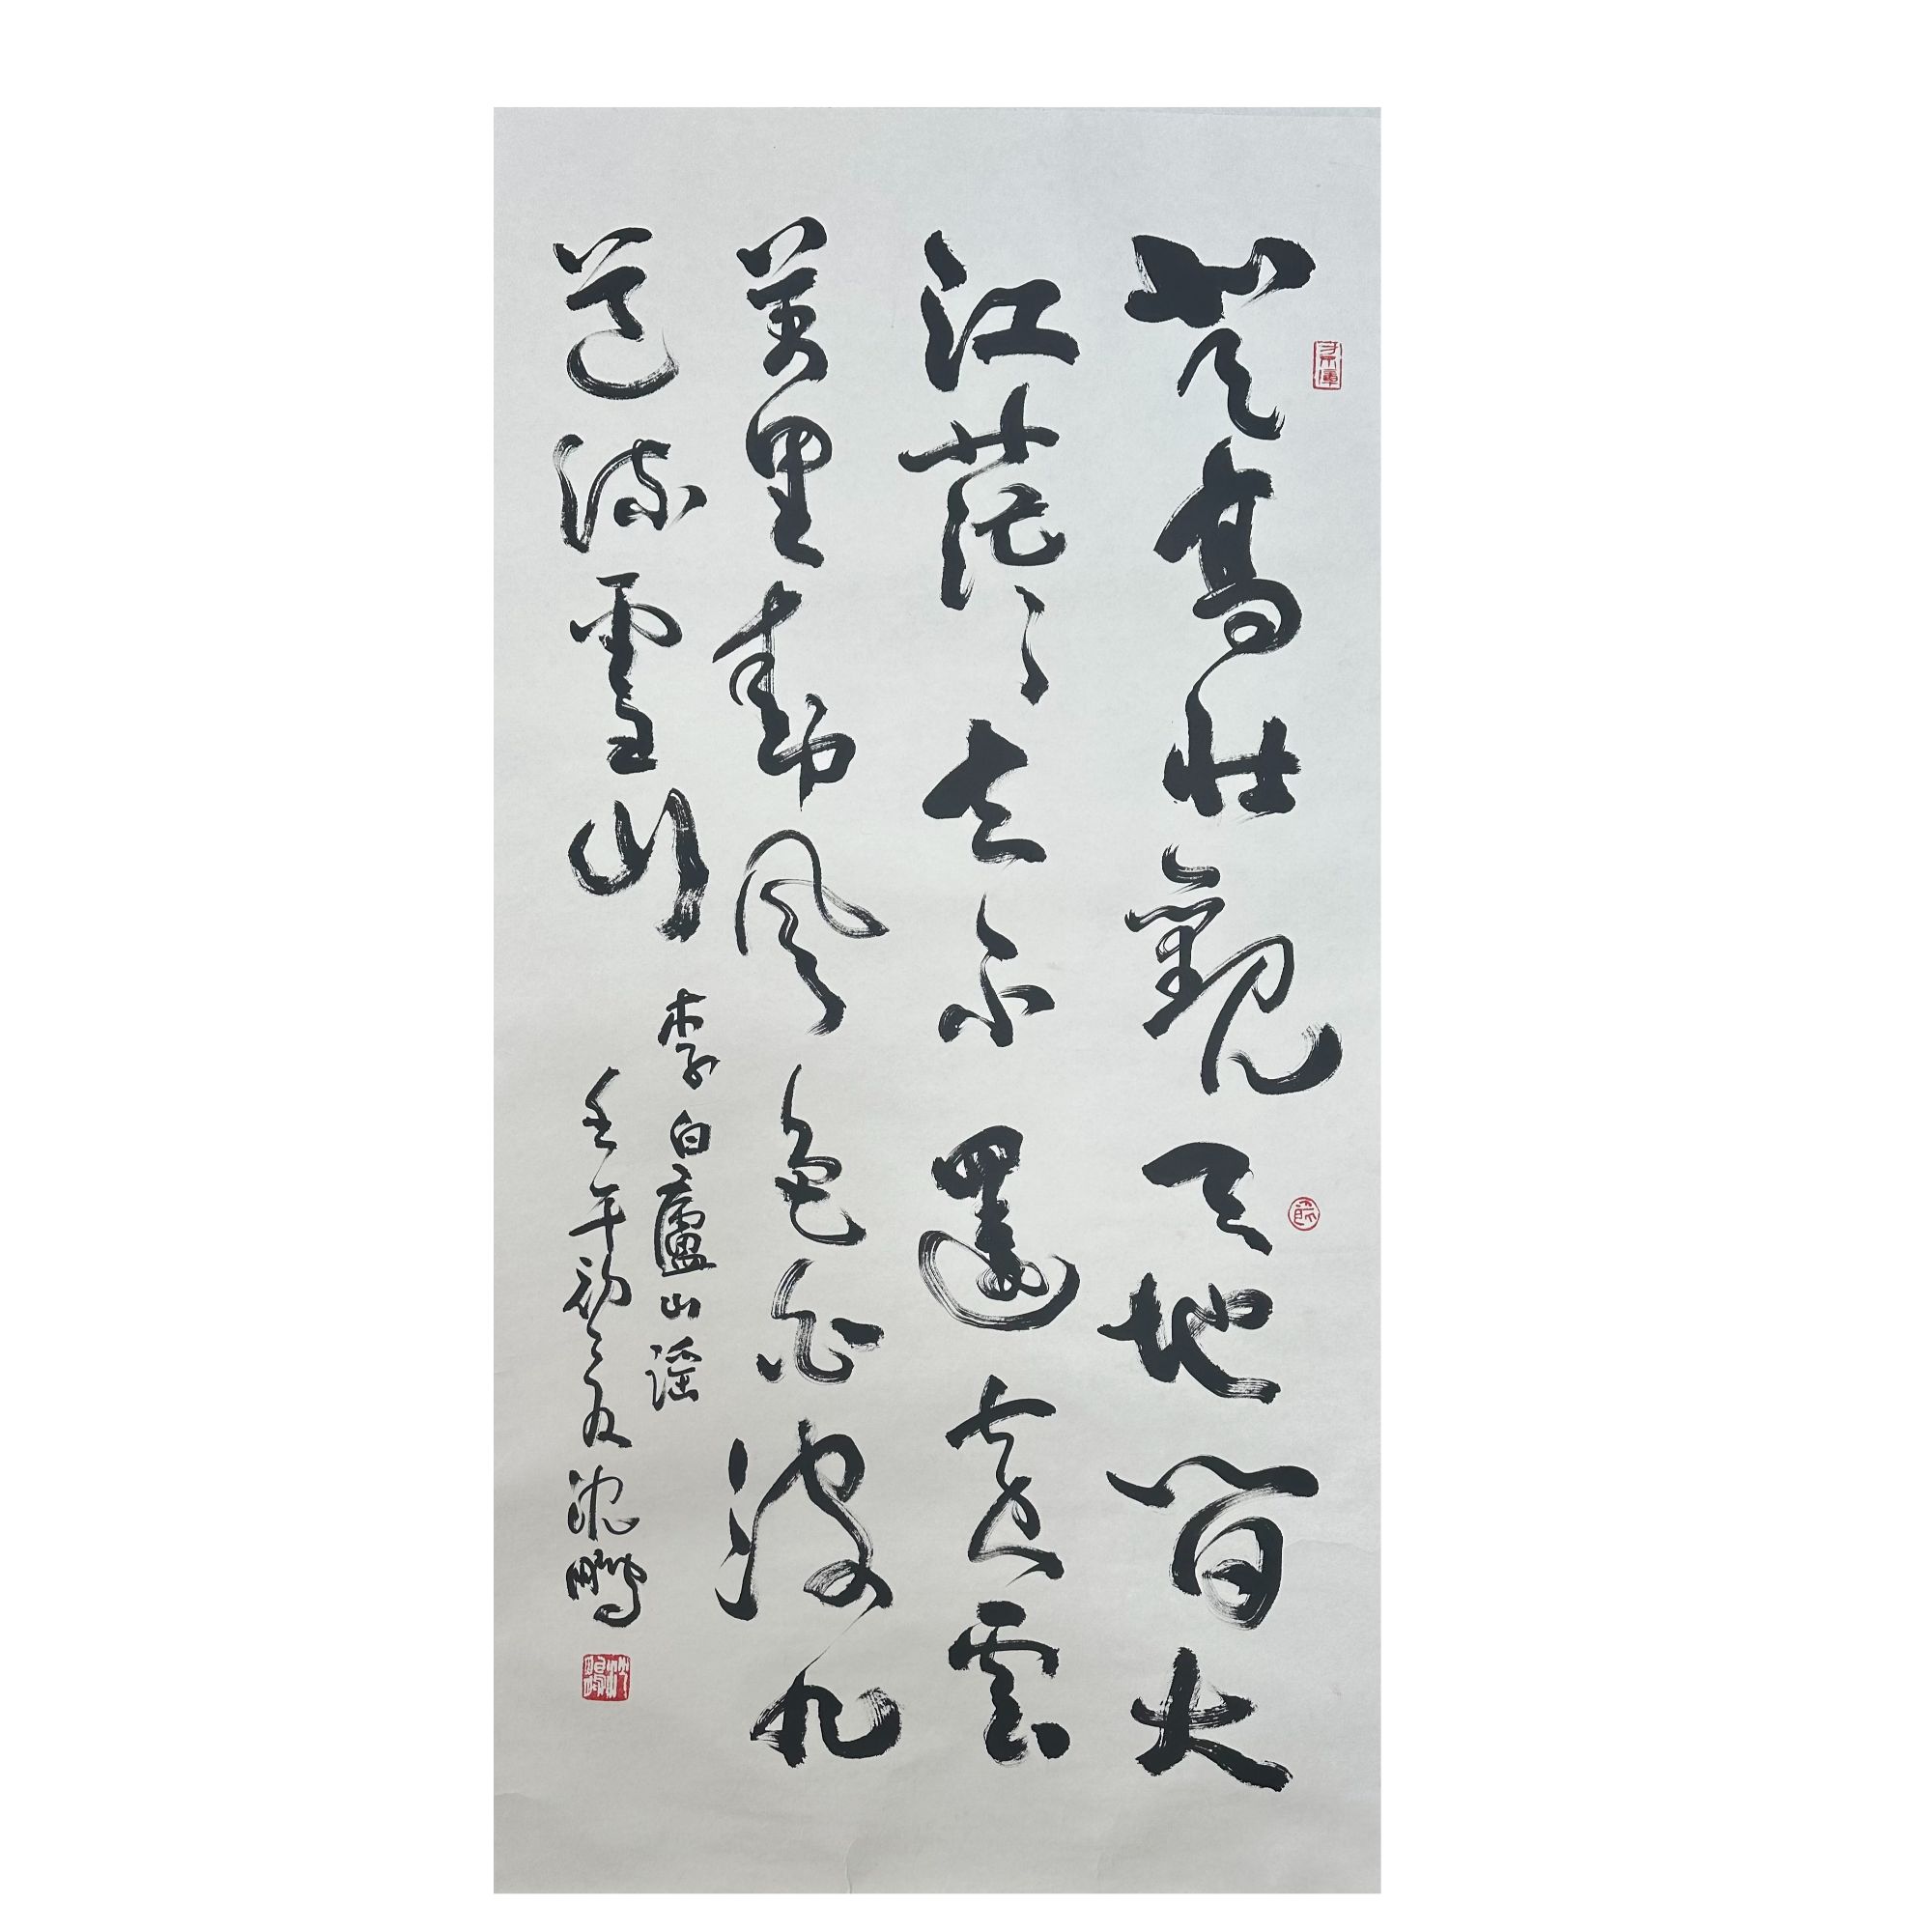 登高壯觀天地間大
江茫々去不還黃雲
萬里動風色白波九
道流雪山
李白廬山謠
壬午初夏沈鵬
沈鵬